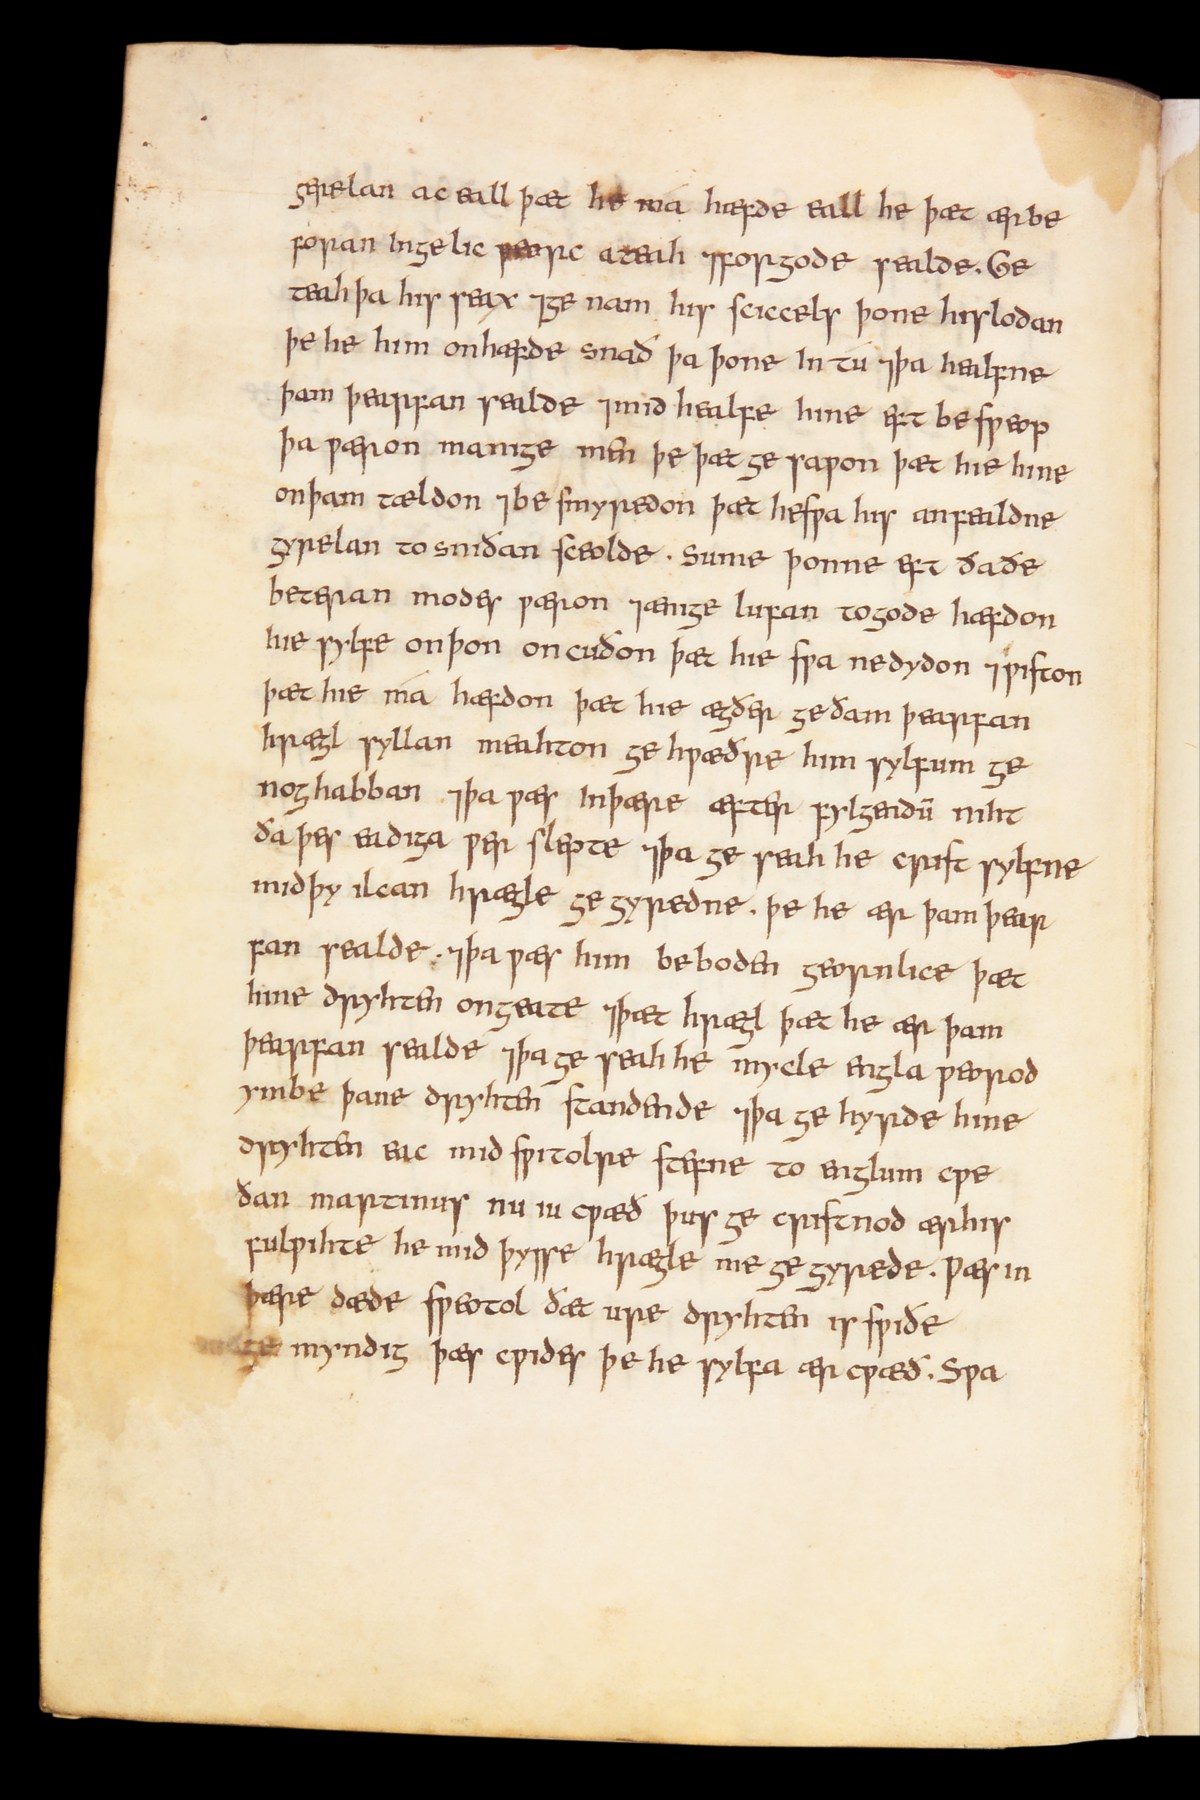 gerelan ac eall þæt he má hæfde eall he þæt ær be
foran in gelic weorc ateah ⁊ for gode sealde. Ge
teah þa his seax ⁊ ge nam his sciccels þone hislodan
þe he him on hæfde snað þa þone in tú ⁊ þa healfne
þam þearfan sealde ⁊ mid healfe hine eft be sƿeop
þa ƿæron manige men þe þæt ge saƿon þæt hie hine
on þam tældon ⁊ be smyredon þæt he sƿa his anfealdne
gyrelan to sniðan sceolde. Sume þonne eft ða ðe
beteran modes ƿæron ⁊ ænige lufan to gode hæfdon
hie sylfe on þon on cuðon þæt hie sƿa ne dydon ⁊ ƿiston
þæt hie má hæfdon þæt hie ægðer ge ðam þearfan
hrægl syllan meahton ge hƿæðre him sylfum ge
nog habban ⁊ þa ƿæs in þære æfter fylgendū niht
ða þes eadiga ƿer slepte ⁊ þa ge seah he crist sylfne
mid þy ilcan hrægle ge gyredne. þe he ær þam þear
fan sealde. ⁊ þa ƿæs him be boden geornlice þæt
hine dryhten ongeate ⁊ þæt hrægl þæt he ær þam
þearfan sealde ⁊ þa ge seah he mycle engla ƿeorod
ymbe þane dryhten standende ⁊ þa ge hyrde hine
dryhten eac mid sƿitolre stefne to englum cƿe
ðan martinus nu iu cƿæð þus ge cristnod ær his
fulƿihte he mid þysse hrægle me ge gyrede. Ƿæs in
þære dæde sƿeotol ðæt ure dryhten is sƿiðe
ge myndig þæs cƿides þe he sylfa ær cƿæð. Sƿa